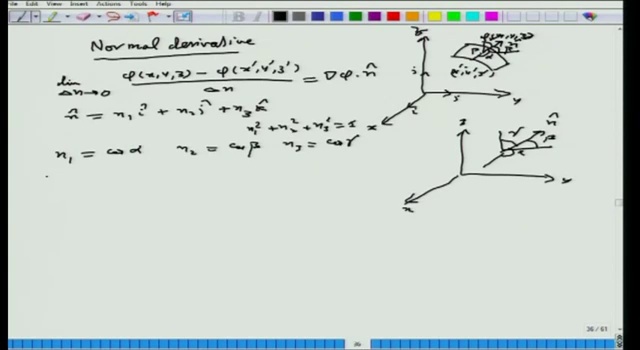 Edit View Insert Actions Tools Help
Normal derivative
lim Δn→0 (φ(x,y,z) − φ(x',y',z')) / Δn = ∇φ·n̂
n̂ = n₁ î + n₂ ĵ + n₃ k̂
n₁² + n₂² + n₃² = 1
n₁ = cos α n₂ = cos β n₃ = cos γ
z
y
x
(x',y',z')
z
n̂
γ
β
α
y
x
36 / 61
36